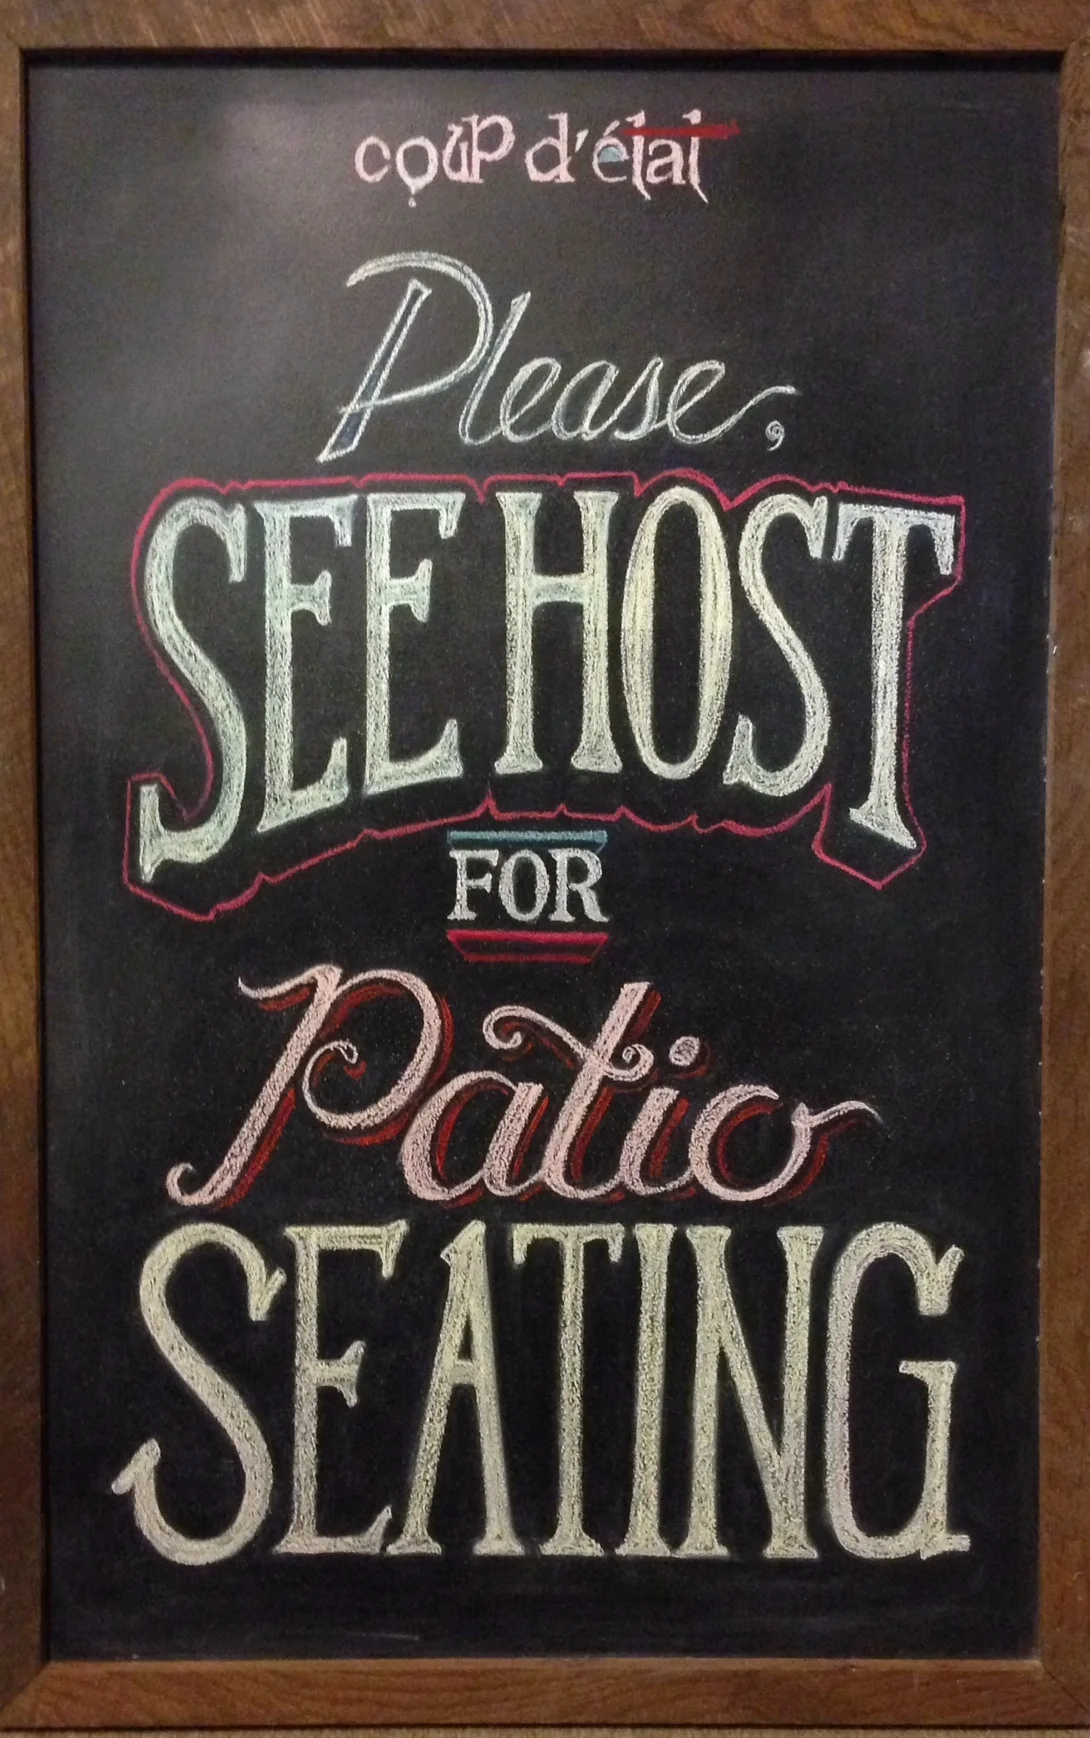 coup d'état
Please,
SEE HOST
FOR
Patio
SEATING